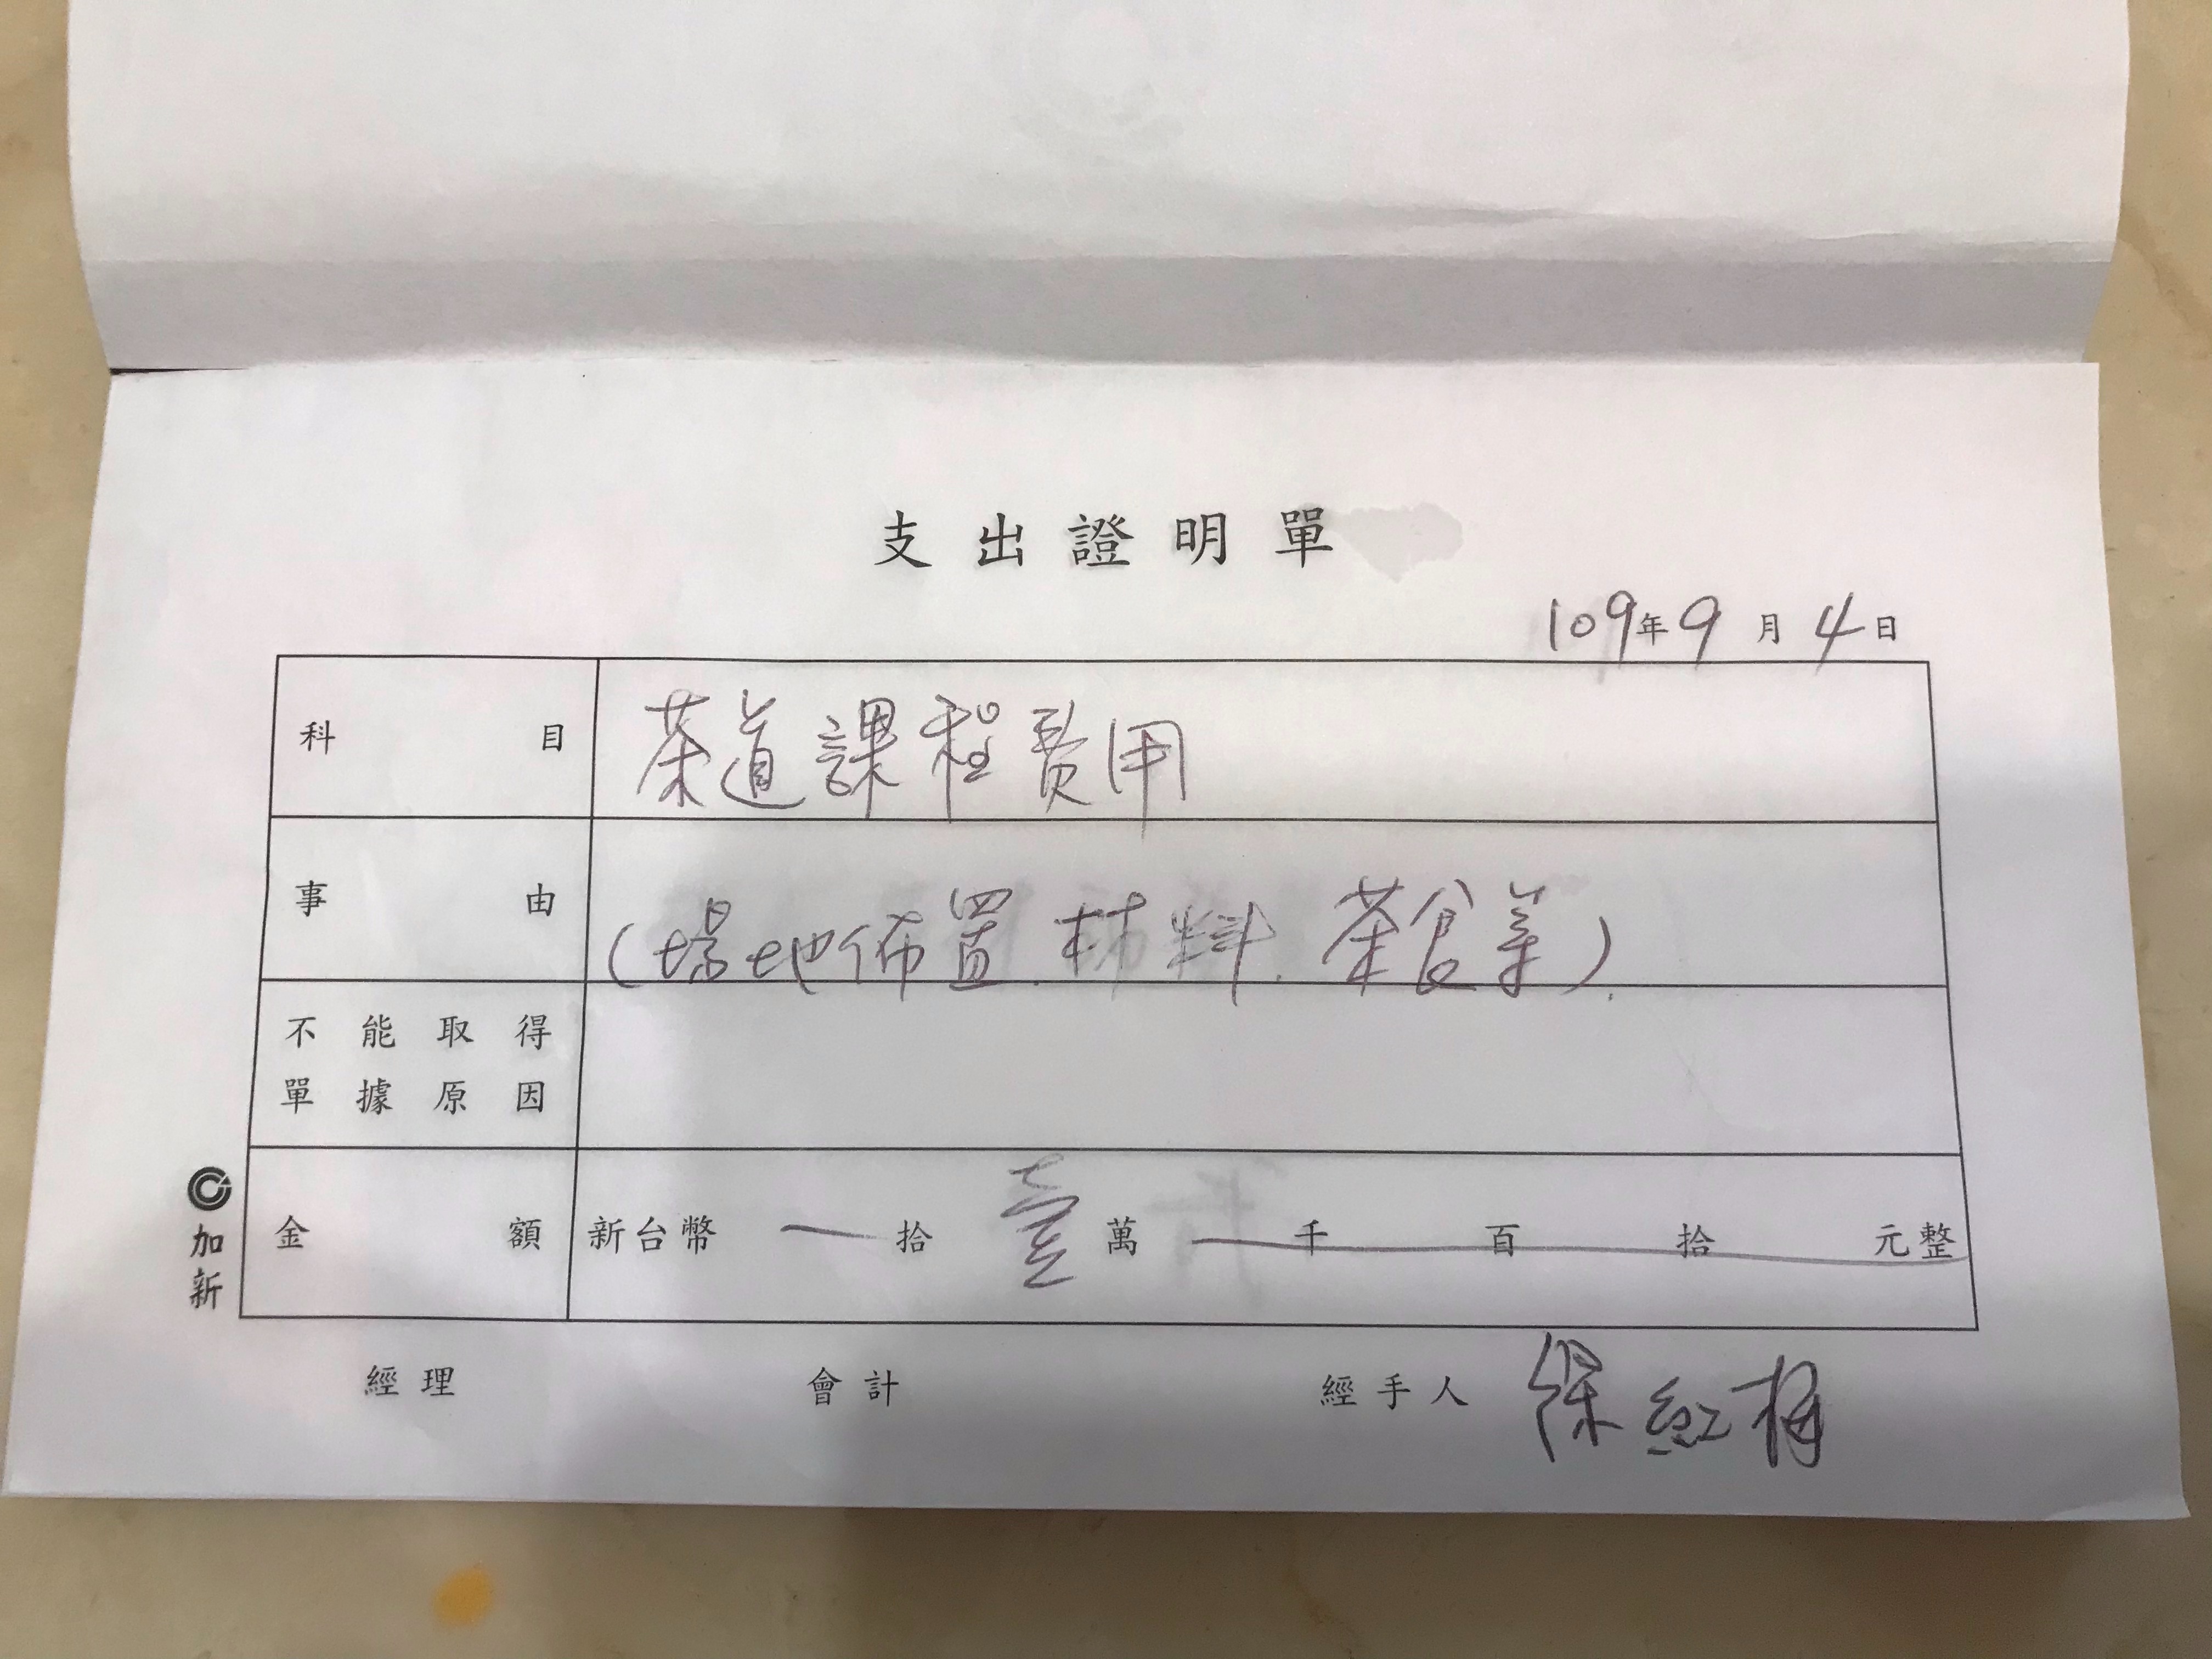 支出證明單
109年9月4日
科目 茶道課程費用
事由 (場地佈置、材料、茶食等)
不能取得
單據原因
金額 新台幣 一拾壹萬 千 百 拾 元整
加新
經理 會計 經手人 紅梅